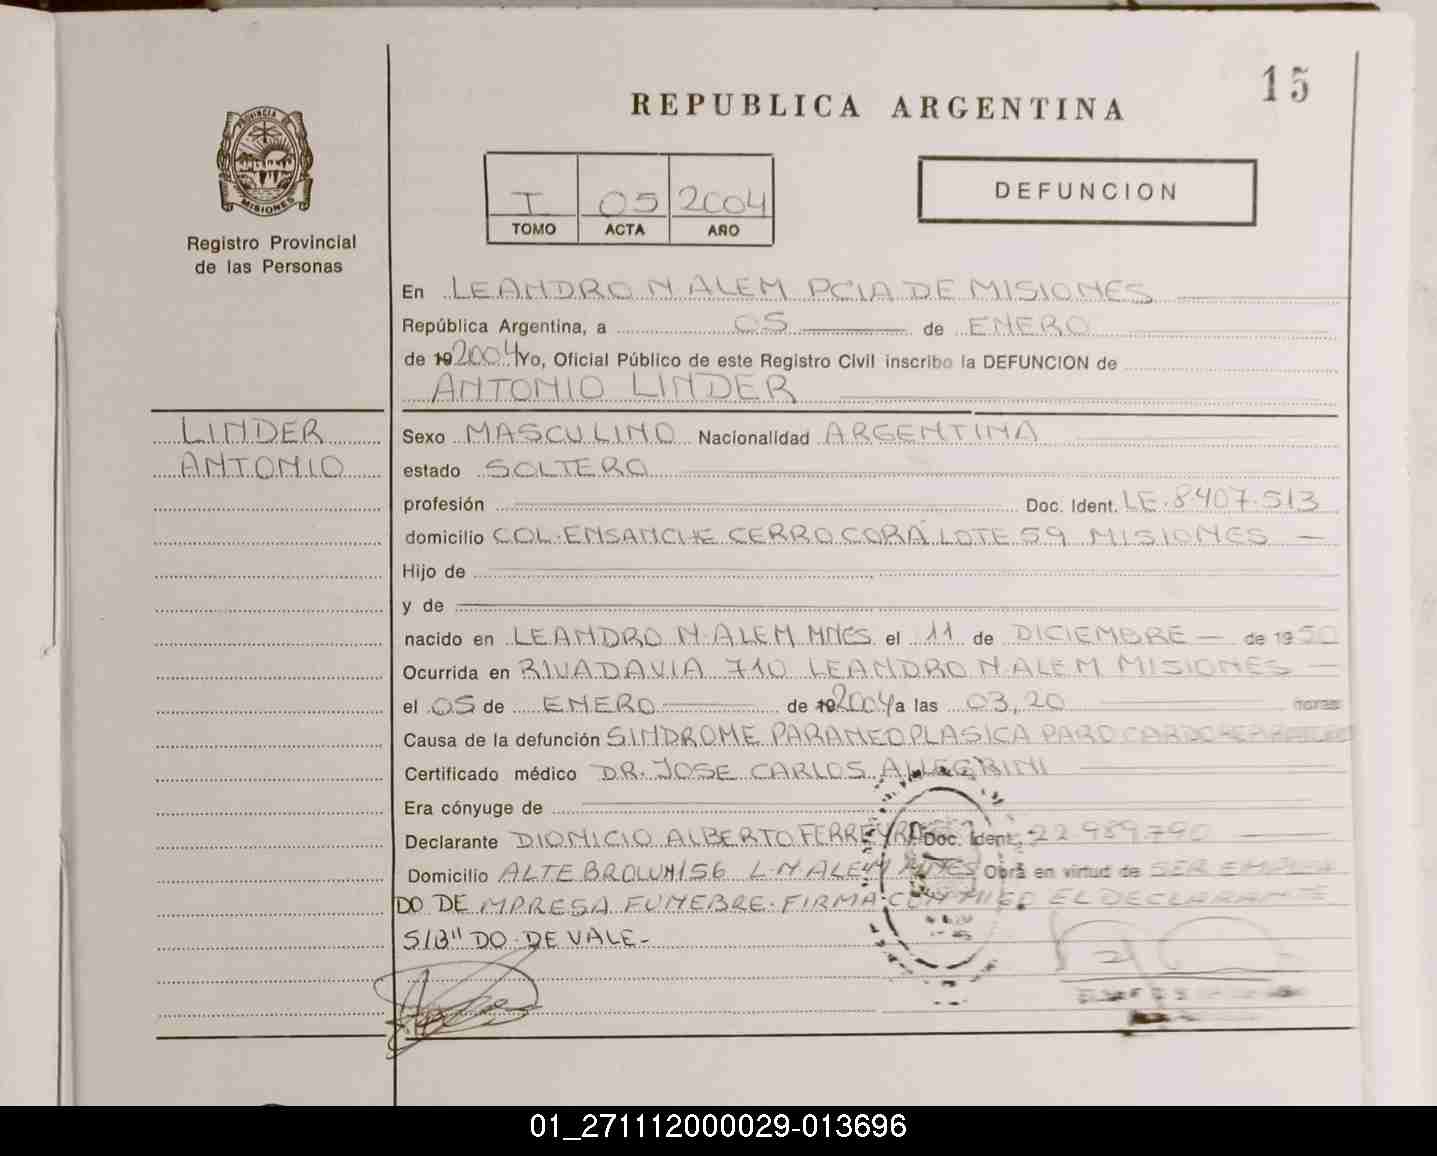 15
REPUBLICA ARGENTINA
PROVINCIA DE
MISIONES
Registro Provincial
de las Personas
I 05 2004
TOMO ACTA AÑO
DEFUNCION
En LEANDRO N ALEM PCIA DE MISIONES
República Argentina, a 05 de ENERO
de 19 2004 Yo, Oficial Público de este Registro Civil inscribo la DEFUNCION de
ANTONIO LINDER
LINDER
ANTONIO
Sexo MASCULINO Nacionalidad ARGENTINA
estado SOLTERO
profesión Doc. Ident. LE.8.407.513
domicilio COL.ENSANCHE CERRO CORÁ LOTE 59 MISIONES
Hijo de
y de
nacido en LEANDRO N.ALEM MNES el 11 de DICIEMBRE de 1950
Ocurrida en RIVADAVIA 710 LEANDRO N.ALEM MISIONES
el 05 de ENERO de 19 2004 a las 03,20 horas
Causa de la defunción SINDROME PARANEOPLASICA PARO
Certificado médico DR. JOSE CARLOS ALLEGRINI
Era cónyuge de
Declarante DIONICIO ALBERTO FERREYRA Doc. Ident. 22.989.790
Domicilio ALTE BROWN 156 L.N ALEM MNES Obra en virtud de SER EMPLEA
DO DE MPRESA FUNEBRE. FIRMA CONMIGO EL DECLARANTE
S/B" DO. DE VALE-
01_271112000029-013696